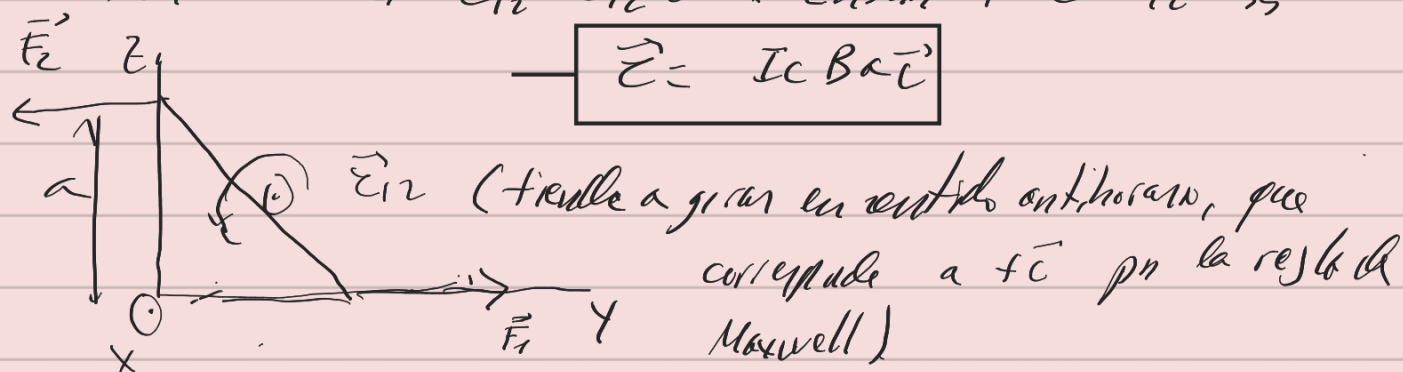 F₂ Z
τ⃗ = I c B a i⃗
a τ⃗₁₂ (tiende a girar en sentido antihorario, que
corresponde a +i⃗ por la regla de
Maxwell)
F⃗₁ Y
X